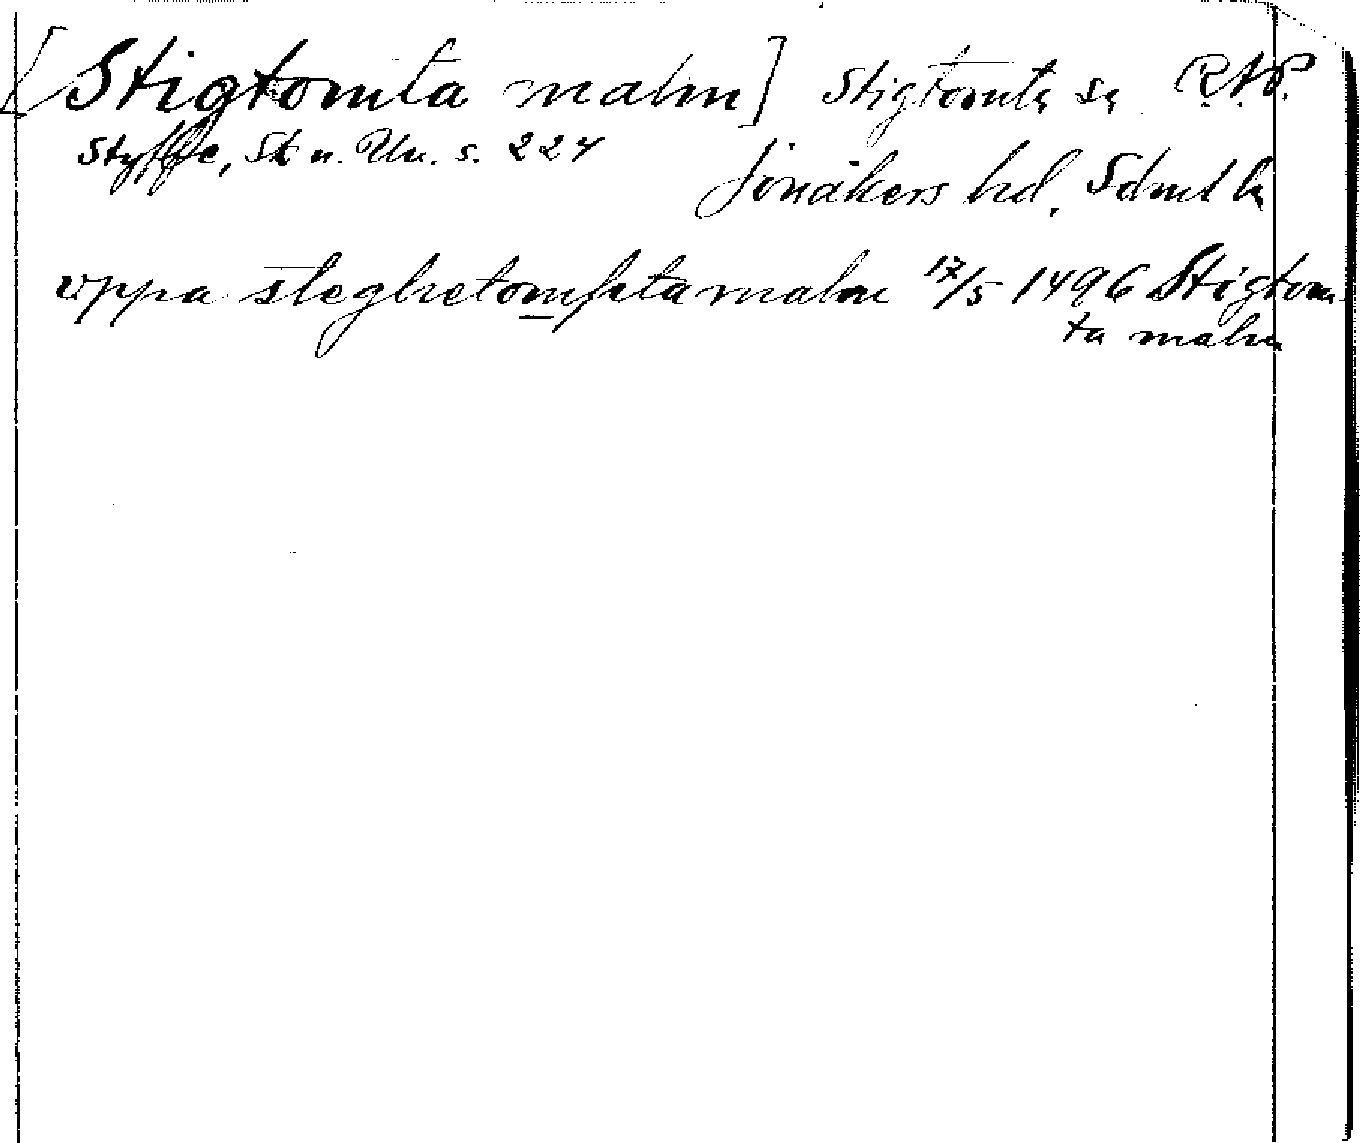 [Stigtomta malm] Stigtomta sn RAP.
Styffe, Sk u. Un. s. 227
Jönåkers hd. Sdml ln
vppa steghetompta malm 17/5 1496 Stigtom-
ta malm